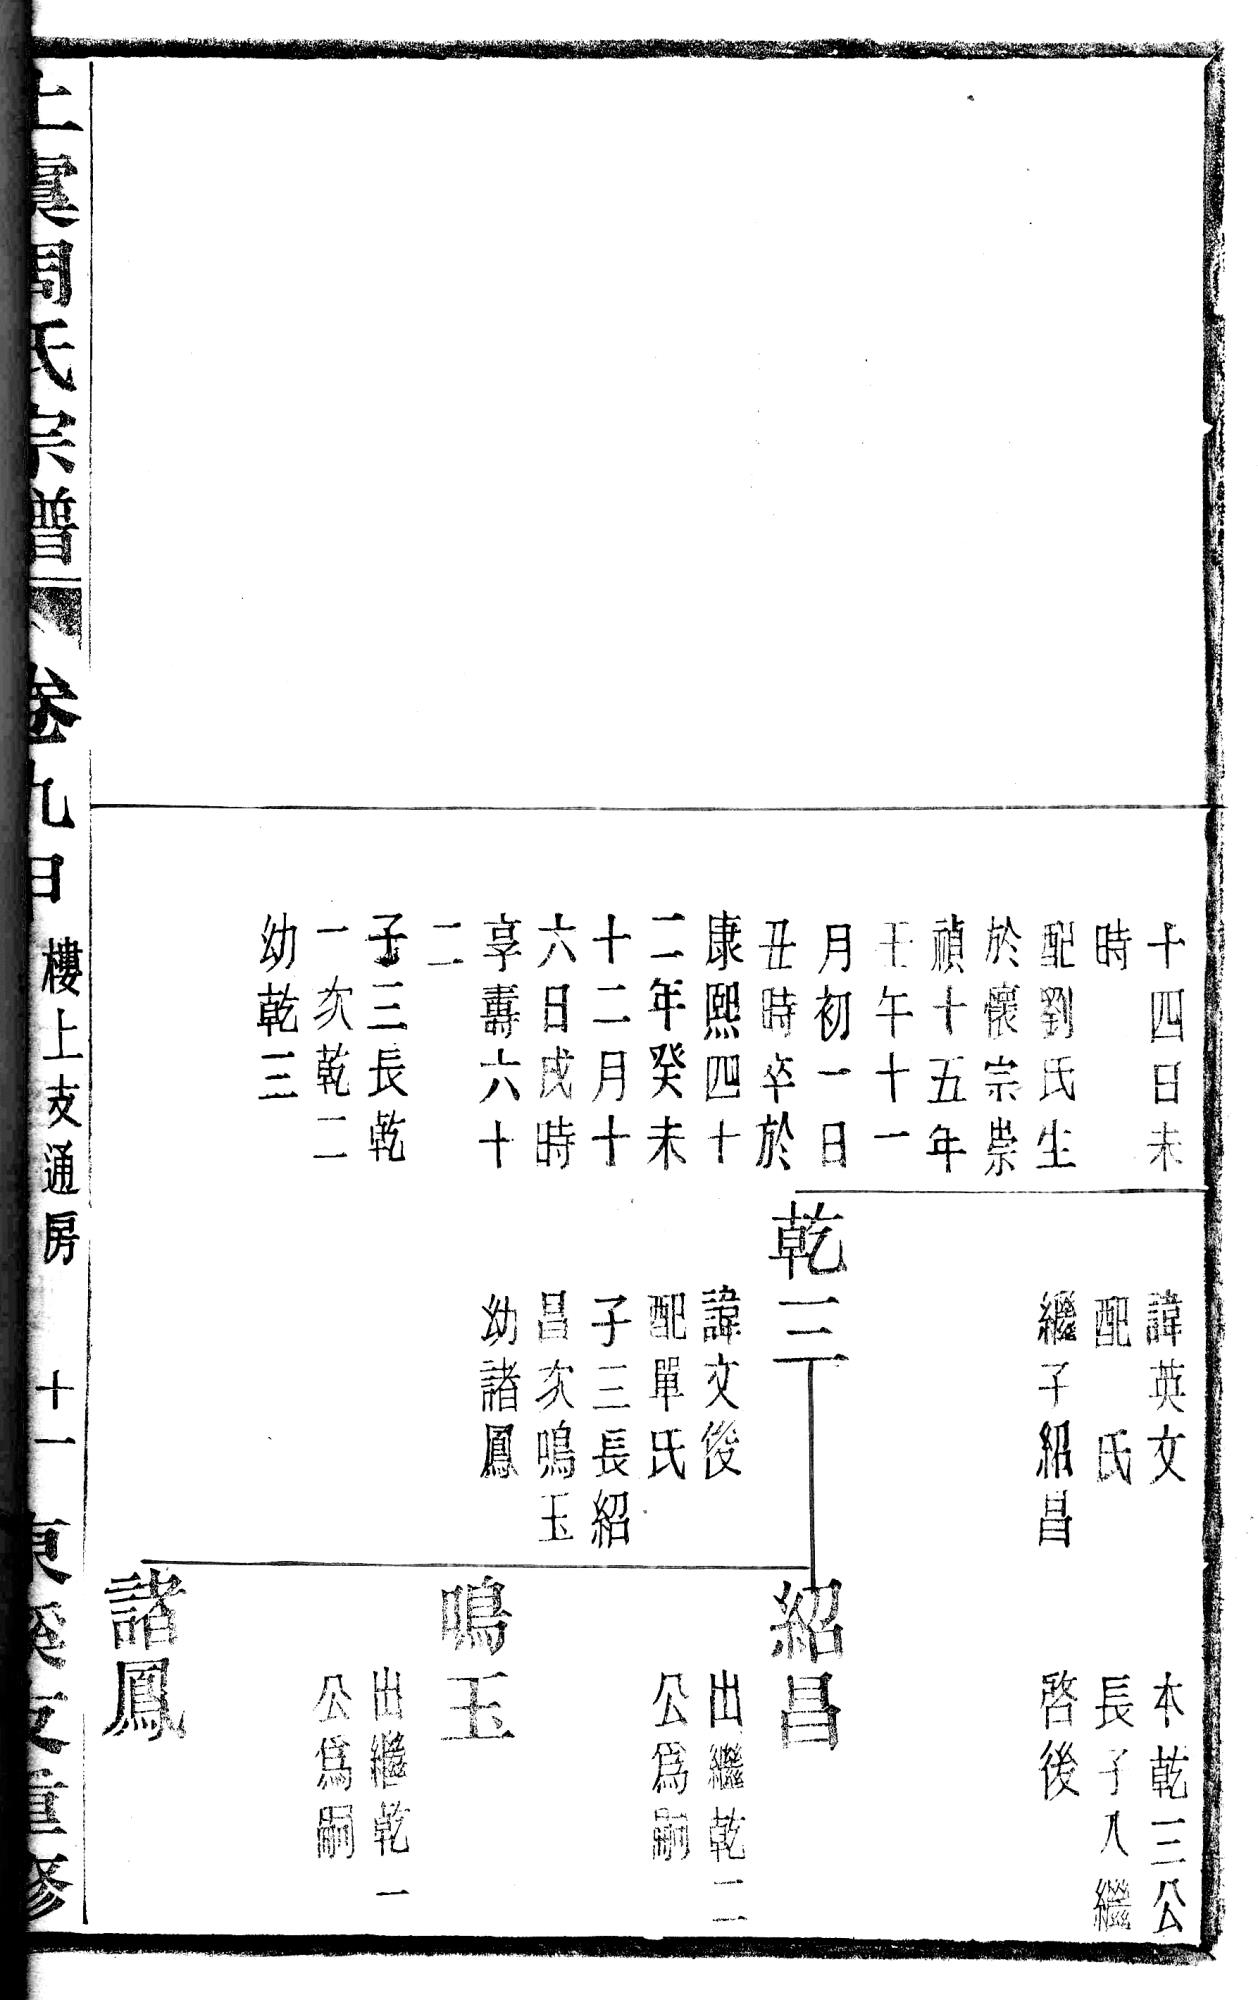 十四日未
時
配劉氏生
於懷宗崇
禎十五年
壬午十一
月初一日
丑時卒於
康熙四十
二年癸未
十二月十
六日戌時
享壽六十
二
子三長乾
一次乾二
幼乾三
諱英文
配　氏
繼子紹昌
乾三
諱文俊
配單氏
子三長紹
昌次鳴玉
幼諸鳳
本乾三公
長子入繼
啓後
紹昌
出繼乾二
公爲嗣
鳴玉
出繼乾一
公爲嗣
諸鳳
上虞周氏宗譜
卷九日
樓上支通房
十一
東溪支重修